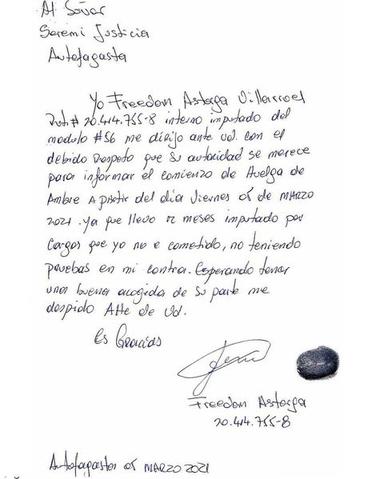 At Señor
Seremi Justicia
Antofagasta
Yo Freedom Astorga Villarroel
Rut# 20.414.755-8 interno imputado del
modulo #56 me dirijo ante ud. con el
debido Respeto que su autoridad se merece
para informar el comienzo de Huelga de
Ambre A partir del día viernes 05 de MARZO
2021. ya que llevo 12 meses imputado por
cargos que yo no e cometido, no teniendo
pruebas en mi contra. Esperando tener
una buena acogida de su parte me
despido Atte de Ud.
Es Gracias
Freedom Astorga
20.414.755-8
Antofagasta 05 MARZO 2021